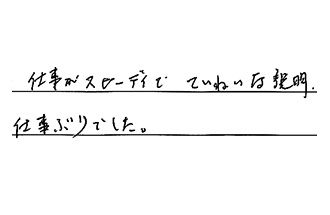 仕事がスピーディで ていねいな説明.
仕事ぶりでした。